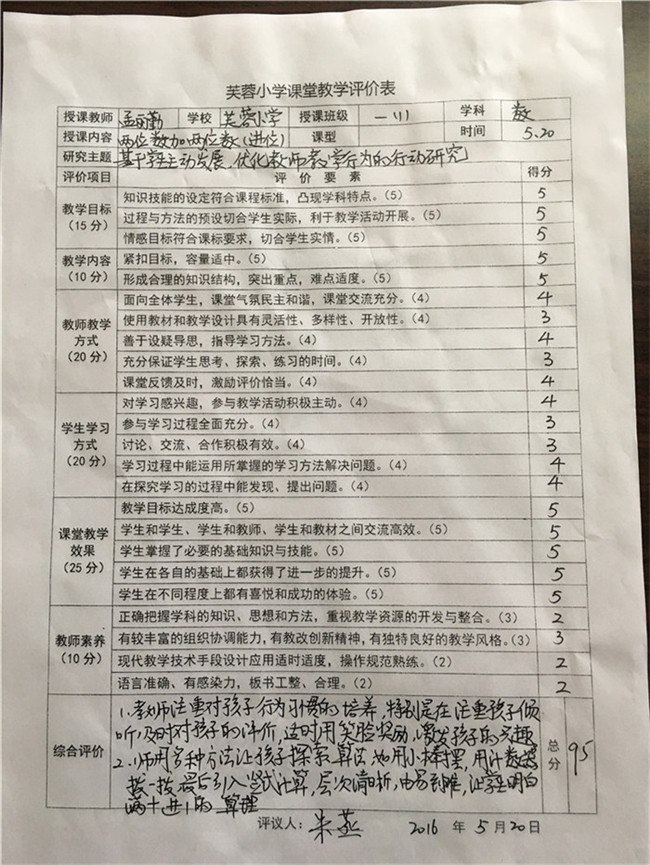 芙蓉小学课堂教学评价表
授课教师 孟丽勤 学校 芙蓉小学 授课班级 一(1) 学科 数
授课内容 两位数加两位数(进位) 课型 时间 5.20
研究主题 基于学生主动发展、优化教师教学行为的行动研究
评价项目 评价要素 得分
教学目标(15分) 知识技能的设定符合课程标准,凸现学科特点。(5) 5
过程与方法的预设切合学生实际,利于教学活动开展。(5) 5
情感目标符合课标要求,切合学生实情。(5) 5
教学内容(10分) 紧扣目标,容量适中。(5) 5
形成合理的知识结构,突出重点,难点适度。(5) 5
教师教学方式(20分) 面向全体学生,课堂气氛民主和谐,课堂交流充分。(4) 4
使用教材和教学设计具有灵活性、多样性、开放性。(4) 3
善于设疑导思,指导学习方法。(4) 4
充分保证学生思考、探索、练习的时间。(4) 3
课堂反馈及时,激励评价恰当。(4) 4
学生学习方式(20分) 对学习感兴趣,参与教学活动积极主动。(4) 4
参与学习过程全面充分。(4) 3
讨论、交流、合作积极有效。(4) 3
学习过程中能运用所掌握的学习方法解决问题。(4) 4
在探究学习的过程中能发现、提出问题。(4) 4
课堂教学效果(25分) 教学目标达成度高。(5) 5
学生和学生、学生和教师、学生和教材之间交流高效。(5) 5
学生掌握了必要的基础知识与技能。(5) 5
学生在各自的基础上都获得了进一步的提升。(5) 5
学生在不同程度上都有喜悦和成功的体验。(5) 5
教师素养(10分) 正确把握学科的知识、思想和方法,重视教学资源的开发与整合。(3) 2
有较丰富的组织协调能力,有教改创新精神,有独特良好的教学风格。(3) 3
现代教学技术手段设计应用适时适度,操作规范熟练。(2) 2
语言准确、有感染力,板书工整、合理。(2) 2
综合评价 1.教师注重对孩子行为习惯的培养,特别是在注重孩子倾
听,及时对孩子的评价,适时用笑脸奖励,激发孩子的兴趣
2.师用多种方法让孩子探索算法,如用小棒摆,用计数器
拨一拨,最后引入尝试计算,层次清晰,由易到难,让学生明白
满十进1的算理
总分 95
评议人:朱燕 2016 年 5 月 20 日